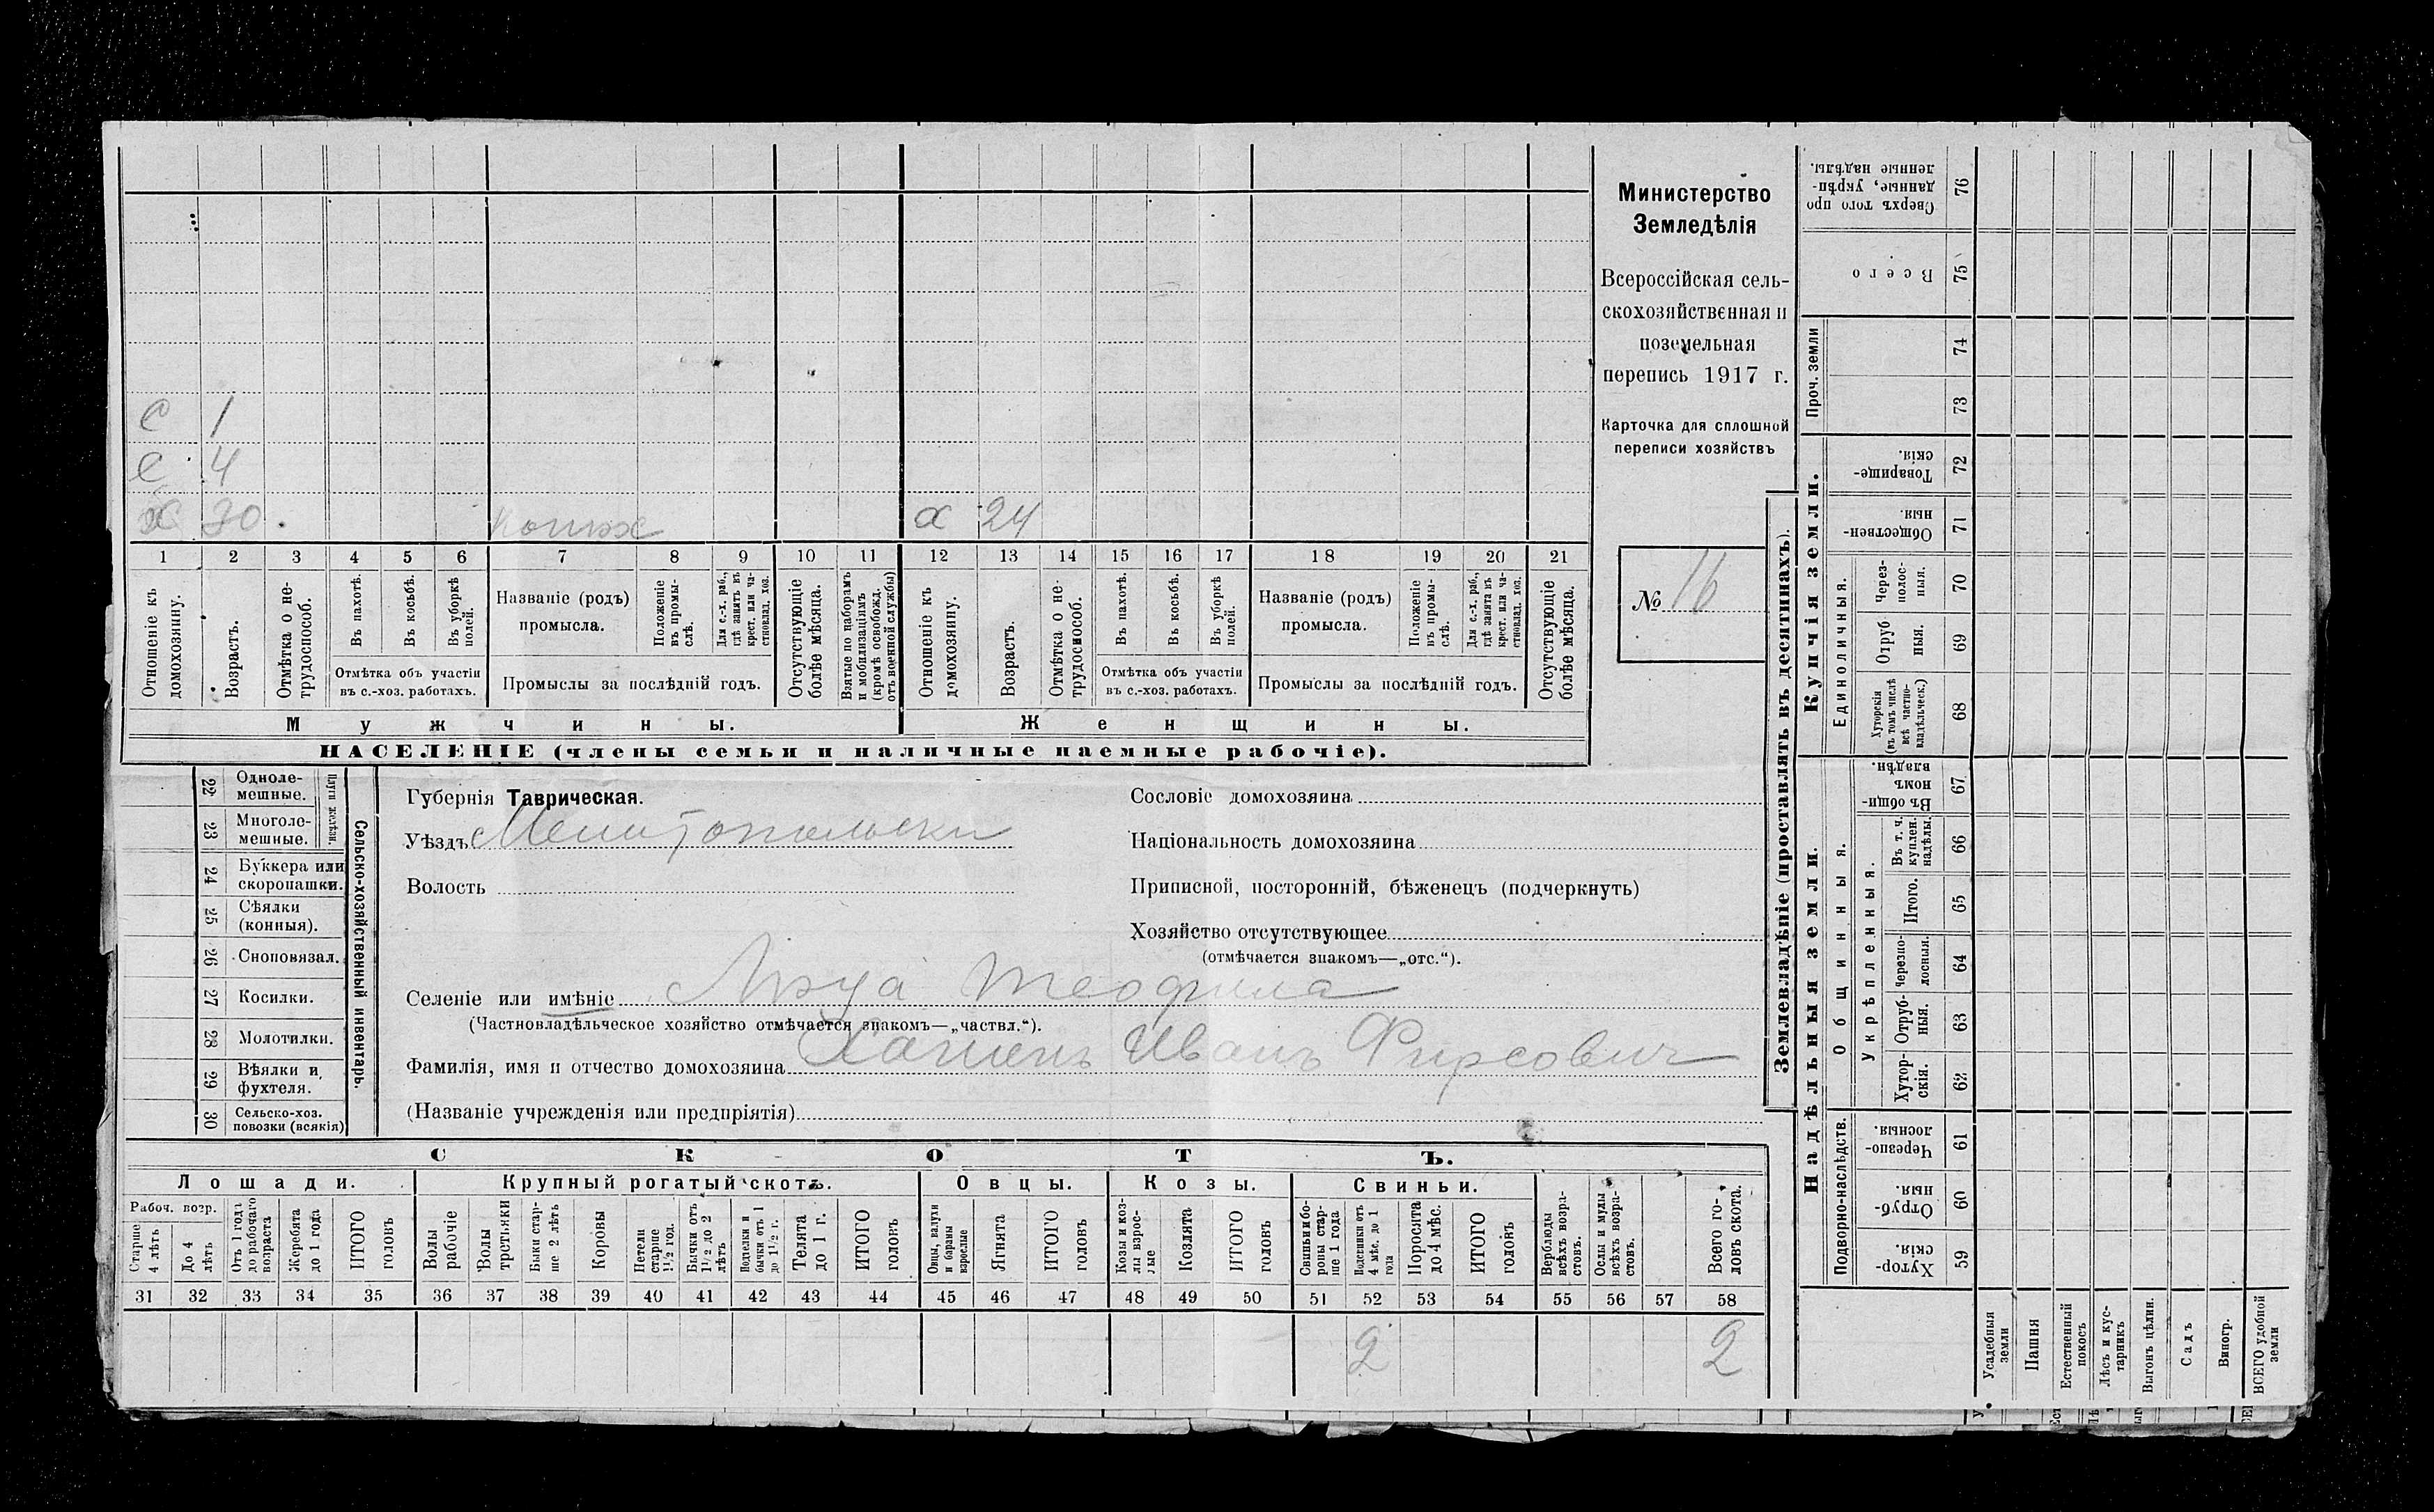 Министерство
Земледѣлія
Всероссійская сель-
скохозяйственная и
поземельная
перепись 1917 г.
Карточка для сплошной
переписи хозяйствъ
№ 16
с 1
с 4
х 30
х 24
1 2 3 4 5 6 7 8 9 10 11 12 13 14 15 16 17 18 19 20 21
Отношеніе къ
домохозяину.
Возрастъ.
Отмѣтка о не-
трудоспособ.
Въ пахотѣ.
Въ косьбѣ.
Въ уборкѣ
полей.
Отмѣтка объ участіи
въ с.-хоз. работахъ.
Названіе (родъ)
промысла.
Положеніе
въ промы-
слѣ.
Для с.-х. раб.,
гдѣ занятъ въ
крест. или ча-
стновлад. хоз.
Промыслы за послѣдній годъ.
Отсутствующіе
болѣе мѣсяца.
Взятые по наборамъ
и мобилизаціямъ
(кромѣ освобожд.
отъ военной службы)
Отношеніе къ
домохозяину.
Возрастъ.
Отмѣтка о не-
трудоспособ.
Въ пахотѣ.
Въ косьбѣ.
Въ уборкѣ
полей.
Отмѣтка объ участіи
въ с.-хоз. работахъ.
Названіе (родъ)
промысла.
Положеніе
въ промы-
слѣ.
Для с.-х. раб.,
гдѣ занята въ
крест. или ча-
стновлад. хоз.
Промыслы за послѣдній годъ.
Отсутствующіе
болѣе мѣсяца.
Мужчины.
Женщины.
НАСЕЛЕНІЕ (члены семьи и наличные наемные рабочіе).
22 Одноле-
мешные.
23 Многоле-
мешные.
Плуги желѣзн.
24 Буккера или
скоропашки.
25 Сѣялки
(конныя).
26 Сноповязал.
27 Косилки.
28 Молотилки.
29 Вѣялки и
фухтеля.
30 Сельско-хоз.
повозки (всякія)
Сельско-хозяйственный инвентарь.
Губернія Таврическая.
Уѣздъ Мелитопольски
Волость
Сословіе домохозяина
Національность домохозяина
Приписной, посторонній, бѣженецъ (подчеркнуть)
Хозяйство отсутствующее
(отмѣчается знакомъ—„отс.“).
Селеніе или имѣніе Теофила
(Частновладѣльческое хозяйство отмѣчается знакомъ—„частвл.“).
Фамилія, имя и отчество домохозяина Иванъ Фирсович
(Названіе учрежденія или предпріятія)
СКОТЪ.
Лошади.
Крупный рогатый скотъ.
Овцы.
Козы.
Свиньи.
Рабоч. возр.
Старше
4 лѣтъ
До 4
лѣтъ
Отъ 1 года
до рабочаго
возраста
Жеребята
до 1 года
ИТОГО
головъ
Волы
рабочіе
Волы
третьяки
Быки стар-
ше 2 лѣтъ
Коровы
Нетели
старше
1½ год.
Бычки отъ
1½ до 2
лѣтъ
Подтелки и
бычки отъ 1
до 1½ г.
Телята
до 1 г.
ИТОГО
головъ
Овцы, валухи
и бараны
взрослые
Ягнята
ИТОГО
головъ
Козы и коз-
лы взрос-
лые
Козлята
ИТОГО
головъ
Свиньи и бо-
ровы стар-
ше 1 года
Подсвинки отъ
4 мѣс. до 1
года
Поросята
до 4 мѣс.
ИТОГО
головъ
Верблюды
всѣхъ возра-
стовъ.
Ослы и мулы
всѣхъ возра-
стовъ.
Всего го-
ловъ скота.
31 32 33 34 35 36 37 38 39 40 41 42 43 44 45 46 47 48 49 50 51 52 53 54 55 56 57 58
2 2
Землевладѣніе (проставлять въ десятинахъ).
Купчія земли.
Надѣльныя земли.
Проч. земли
Единоличныя.
Общинныя.
Укрѣпленныя.
Подворно-наслѣдств.
Сверхъ того про
данные, укрѣп-
ленные надѣлы.
76
Всего
75
74
73
Товарище-
скія.
72
Обществен-
ныя.
71
Через-
полос-
ныя.
70
Отруб
ныя.
69
Хуторскія
(въ томъ числѣ
всѣ частно-
владѣльческ.)
68
Въ общи-
номъ
владѣн.
67
Въ т. ч.
куплен.
надѣлы.
66
Итого.
65
Черезпо-
лосныя.
64
Отруб-
ныя.
63
Хутор-
скія.
62
Черезпо-
лосныя.
61
Отруб-
ныя.
60
Хутор-
скія.
59
Усадебныя
земли
Пашня
Естественный
покосъ
Лѣсъ и кус-
тарникъ
Выгонъ цѣлин.
Садъ
Виногр.
ВСЕГО удобной
земли